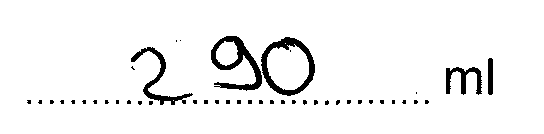 290 ml